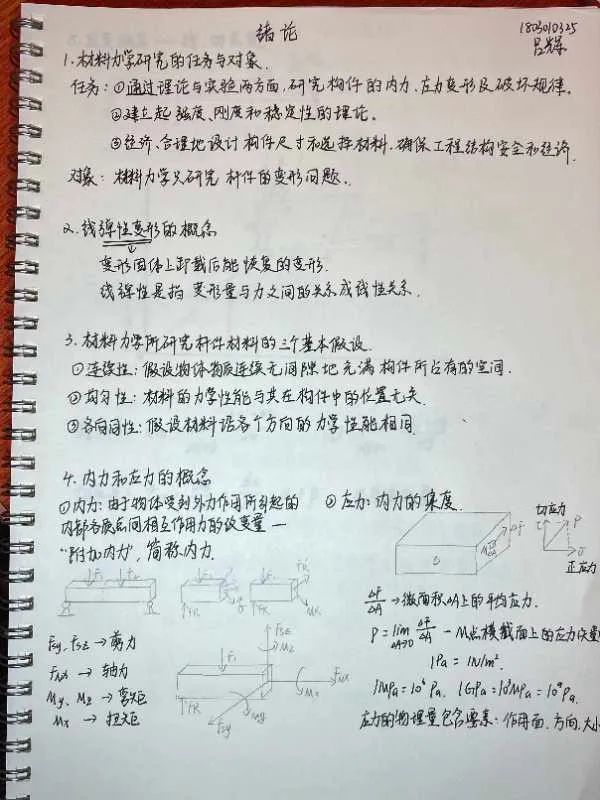 绪论
180301325
吕辉
1.材料力学研究的任务与对象.
任务:①通过理论与实验两方面,研究构件的内力、应力变形及破坏规律.
②建立起强度、刚度和稳定性的理论.
③经济、合理地设计构件尺寸和选择材料.确保工程结构安全和经济.
对象:材料力学只研究杆件的变形问题.
2.线弹性变形的概念
变形固体上卸载后能恢复的变形.
线弹性是指变形量与力之间的关系成线性关系.
3.材料力学所研究杆件材料的三个基本假设.
①连续性:假设物体物质连续无间隙地充满构件所占有的空间.
②均匀性:材料的力学性能与其在构件中的位置无关.
③各向同性:假设材料沿各个方向的力学性能相同.
4.内力和应力的概念
①内力:由于物体受到外力作用所引起的
内部各质点间相互作用力的改变量—
"附加内力",简称内力.
②应力:内力的集度.
切应力
τ P
σ
正应力
F₁ F₂
F₁ FR
FR
MR
ΔF/ΔA→微面积ΔA上的平均应力.
P=lim ΔA→0 ΔF/ΔA —M点横截面上的应力矢量
1Pa=1N/m².
1MPa=10⁶Pa. 1GPa=10³MPa=10⁹Pa.
应力的物理量包含要素:作用面、方向、大小
FSy、FSz→剪力
FNx→轴力
My、Mz→弯矩
Mx→扭矩
FSz
Mz
F₁
FNx
Mx
FR
FSy
My